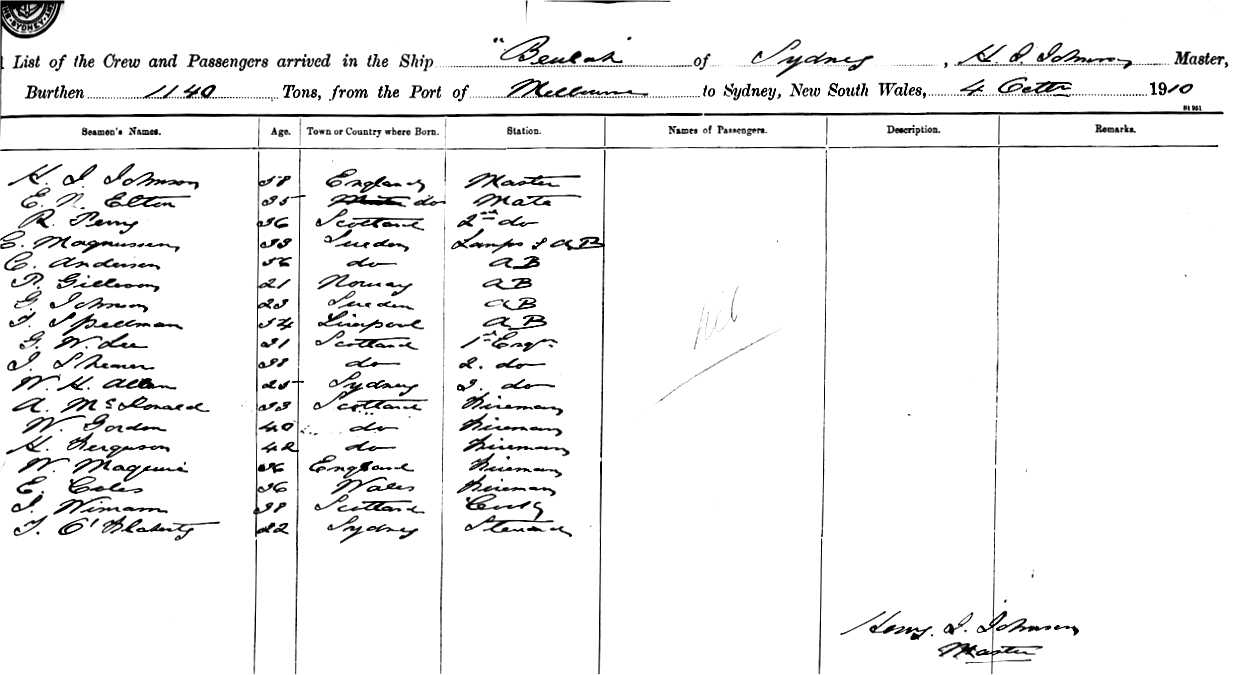 SYDNEY
List of the Crew and Passengers arrived in the Ship "Beulah" of Sydney, H. I. Johnson Master,
Burthen 1140 Tons, from the Port of Melbourne to Sydney, New South Wales, 4 Octbr 1910
Seamen's Names. Age. Town or Country where Born. Station. Names of Passengers. Description. Remarks.
H. I. Johnson 58 England Master
E. N. Elton 35 do Mate
R. Perry 36 Scotland 2nd do
E. Magnussen 33 Sweden Lamps & AB
C. Andersen 36 do AB
21 Norway AB
G. Johnson 23 Sweden AB
T. Spellman 34 Liverpool AB
G. W. Lee 31 Scotland 1st Engr
nil
J. Shearer 38 do 2. do
W. H. Allan 25 Sydney 3. do
A. McDonald 33 Scotland Fireman
W. Gordon 40 do Fireman
H. Ferguson 42 do Fireman
W. Maguire 36 England Fireman
E. Coles 36 Wales Fireman
38 Scotland Cook
T. O'Flaherty 22 Sydney Steward
Henry. I. Johnson
Master